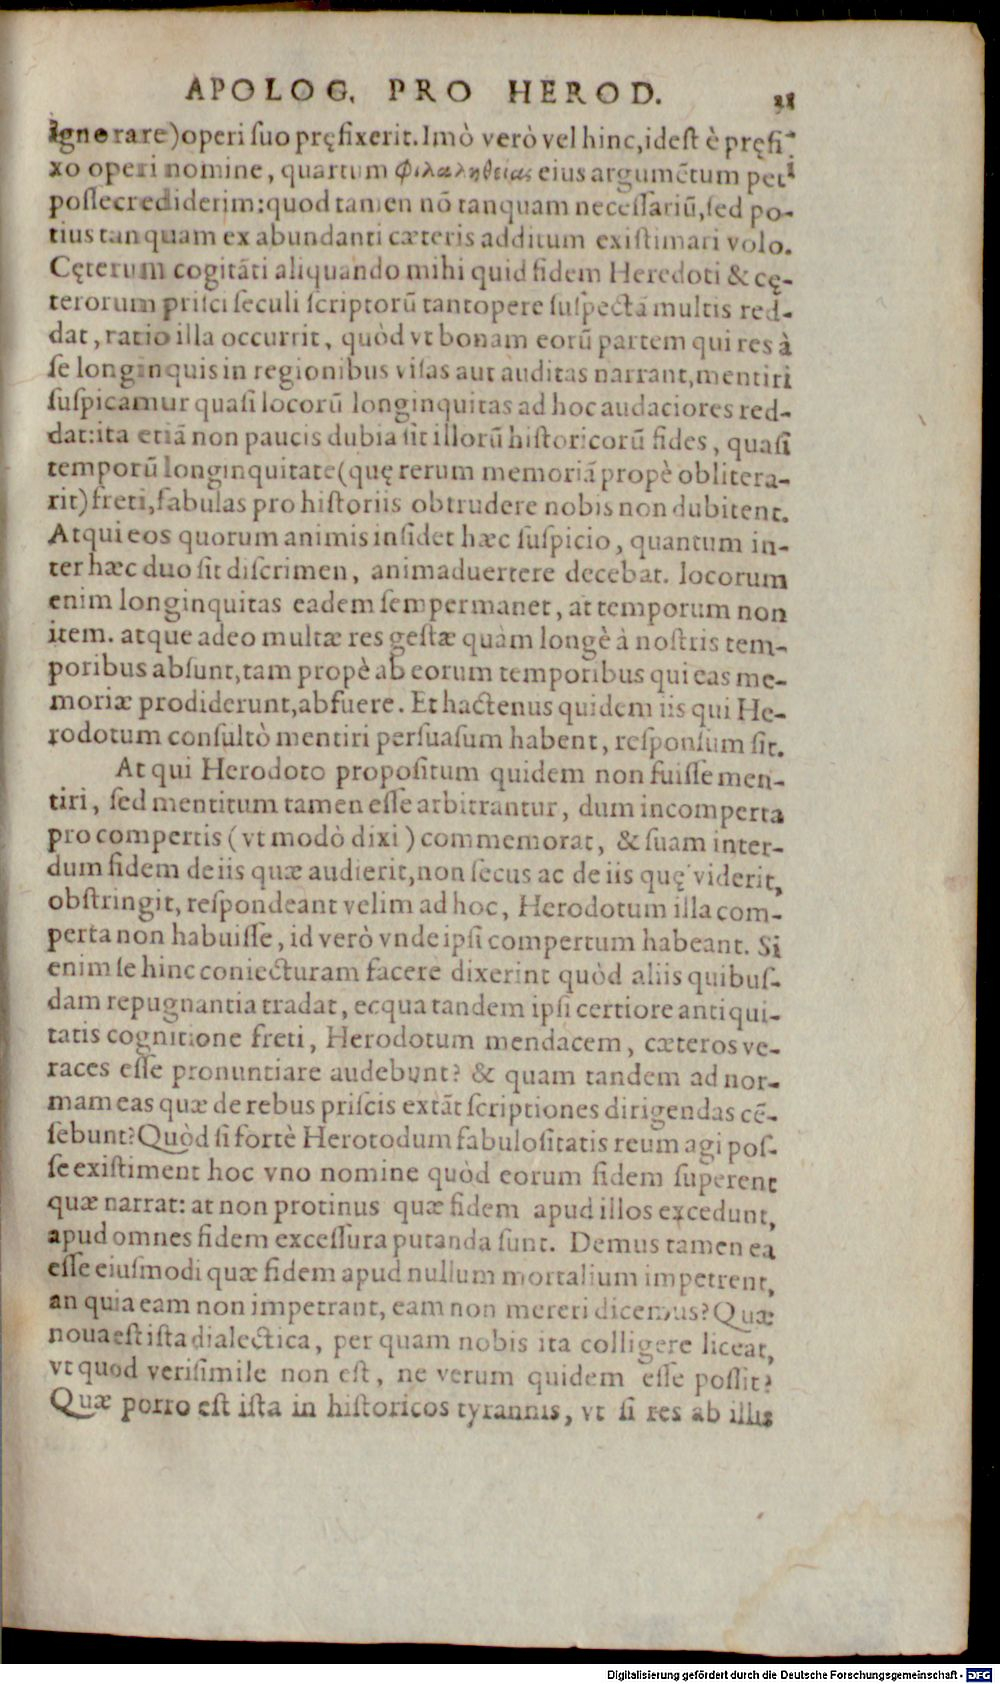 APOLOG. PRO HEROD.
ignorare) operi ſuo pręfixerit. Imò verò vel hinc, ideſt è pręfi-
xo operi nomine, quartum φιλαληθείας eius argumẽtum peti
poſſe crediderim: quod tamen nõ tanquam neceſſariũ, ſed po-
tius tanquam ex abundanti cæteris additum exiſtimari volo.
Cęterum cogitãti aliquando mihi quid fidem Heredoti & cę-
terorum priſci ſeculi ſcriptorũ tantopere ſuſpectã multis red-
dat, ratio illa occurrit, quòd vt bonam eorũ partem qui res à
ſe longinquis in regionibus viſas aut auditas narrant, mentiri
ſuſpicamur quaſi locorũ longinquitas ad hoc audaciores red-
dat: ita etiã non paucis dubia ſit illorũ hiſtoricorũ fides, quaſi
temporũ longinquitate (quę rerum memoriã propè oblitera-
rit) freti, fabulas pro hiſtoriis obtrudere nobis non dubitent.
Atqui eos quorum animis inſidet hæc ſuſpicio, quantum in-
ter hæc duo ſit diſcrimen, animaduertere decebat. locorum
enim longinquitas eadem ſemper manet, at temporum non
item. atque adeo multæ res geſtæ quàm longè à noſtris tem-
poribus abſunt, tam propè ab eorum temporibus qui eas me-
moriæ prodiderunt, abfuere. Et hactenus quidem iis qui He-
rodotum conſultò mentiri perſuaſum habent, reſponſum ſit.
At qui Herodoto propoſitum quidem non fuiſſe men-
tiri, ſed mentitum tamen eſſe arbitrantur, dum incomperta
pro compertis (vt modò dixi) commemorat, & ſuam inter-
dum fidem de iis quæ audierit, non ſecus ac de iis quę viderit,
obſtringit, reſpondeant velim ad hoc, Herodotum illa com-
perta non habuiſſe, id verò vnde ipſi compertum habeant. Si
enim ſe hinc coniecturam facere dixerint quòd aliis quibuſ-
dam repugnantia tradat, ecqua tandem ipſi certiore antiqui-
tatis cognitione freti, Herodotum mendacem, cæteros ve-
races eſſe pronuntiare audebunt? & quam tandem ad nor-
mam eas quæ de rebus priſcis extãt ſcriptiones dirigendas cẽ-
ſebunt? Quòd ſi fortè Herotodum fabuloſitatis reum agi poſ-
ſe exiſtiment hoc vno nomine quòd eorum fidem ſuperent
quæ narrat: at non protinus quæ fidem apud illos excedunt,
apud omnes fidem exceſſura putanda ſunt. Demus tamen ea
eſſe eiuſmodi quæ fidem apud nullum mortalium impetrent,
an quia eam non impetrant, eam non mereri dicemus? Quæ
noua eſt iſta dialectica, per quam nobis ita colligere liceat,
vt quod veriſimile non eſt, ne verum quidem eſſe poſſit?
Quæ porro eſt iſta in hiſtoricos tyrannis, vt ſi res ab illis
Digitalisierung gefördert durch die Deutsche Forschungsgemeinschaft - DFG